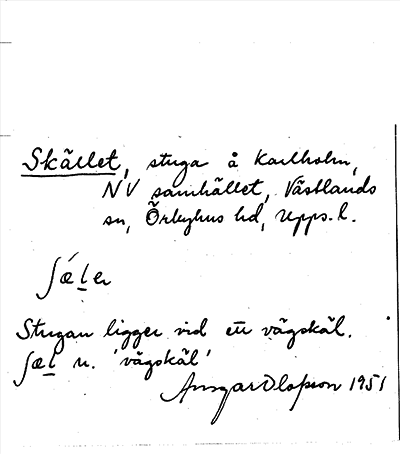 Skället, stuga å Karlholm,
NV samhället, Västlands
sn, Örbyhus hd, Upps. l.
ʃǽlɛ
Stugan ligger vid ett vägskäl.
ʃæl n. 'vägskäl'
Ansgar Olofsson 1951